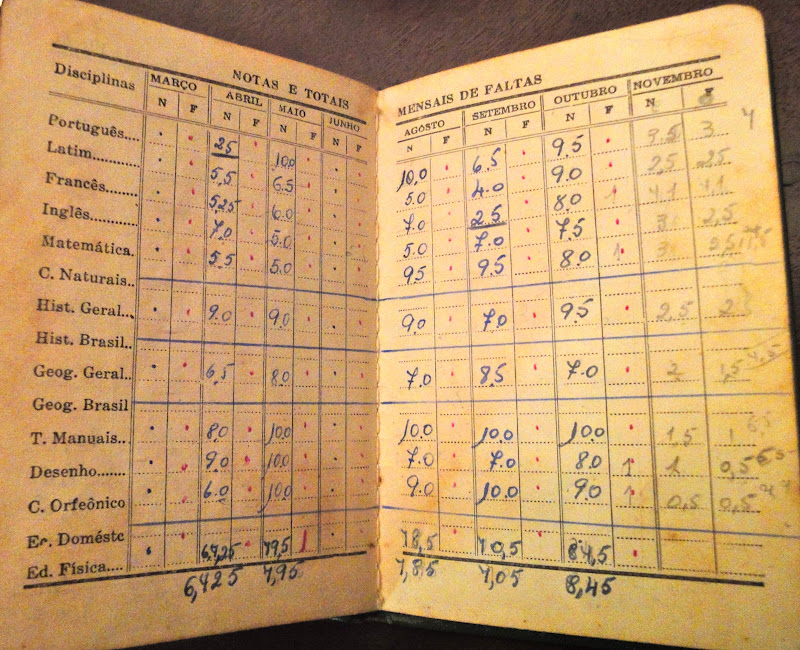 NOTAS E TOTAIS
Disciplinas MARÇO ABRIL MAIO JUNHO
N F N F N F N F
Português.... 2.5 10.0
Latim.......... 5.5 6.5
Francês........ 5.25 6.0
Inglês.......... 7.0 5.0
Matemática. 5.5 5.0
C. Naturais..
Hist. Geral.. 9.0 9.0
Hist. Brasil..
Geog. Geral.. 6.5 8.0
Geog. Brasil
T. Manuais.. 8.0 10.0
Desenho....... 9.0 10.0
C. Orfeônico 6.0 10.0
Ec. Doméstc
Ed. Física.... 64,25 79,5 1
6,425 7,95
MENSAIS DE FALTAS
AGOSTO SETEMBRO OUTUBRO NOVEMBRO
N F N F N F N F
10.0 6.5 9.5 9.5 3 4
5.0 4.0 9.0 2,5 25
7.0 2.5 8.0 1 4.1 4.1
5.0 7.0 7.5 3 2,5
9.5 9.5 8.0 1 3
9.0 7.0 9.5 2,5 2
7.0 8.5 7.0 2 1,5
10.0 10.0 10.0 1,5 1
7.0 7.0 8.0 1 1 0,5
9.0 10.0 9.0 1 0,5 0,5
78,5 70,5 84,5
7,85 7,05 8,45